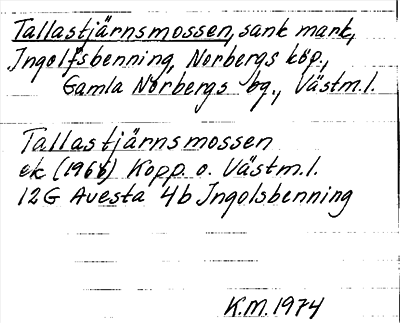 Tallastjärnsmossen, sank mark,
Ingolfsbenning, Norbergs köp.,
Gamla Norbergs bg., Västm.l.
Tallastjärnsmossen
ek (1966) Kopp. o. Västm.l.
12G Avesta 4b Ingolsbenning
K.M. 1974